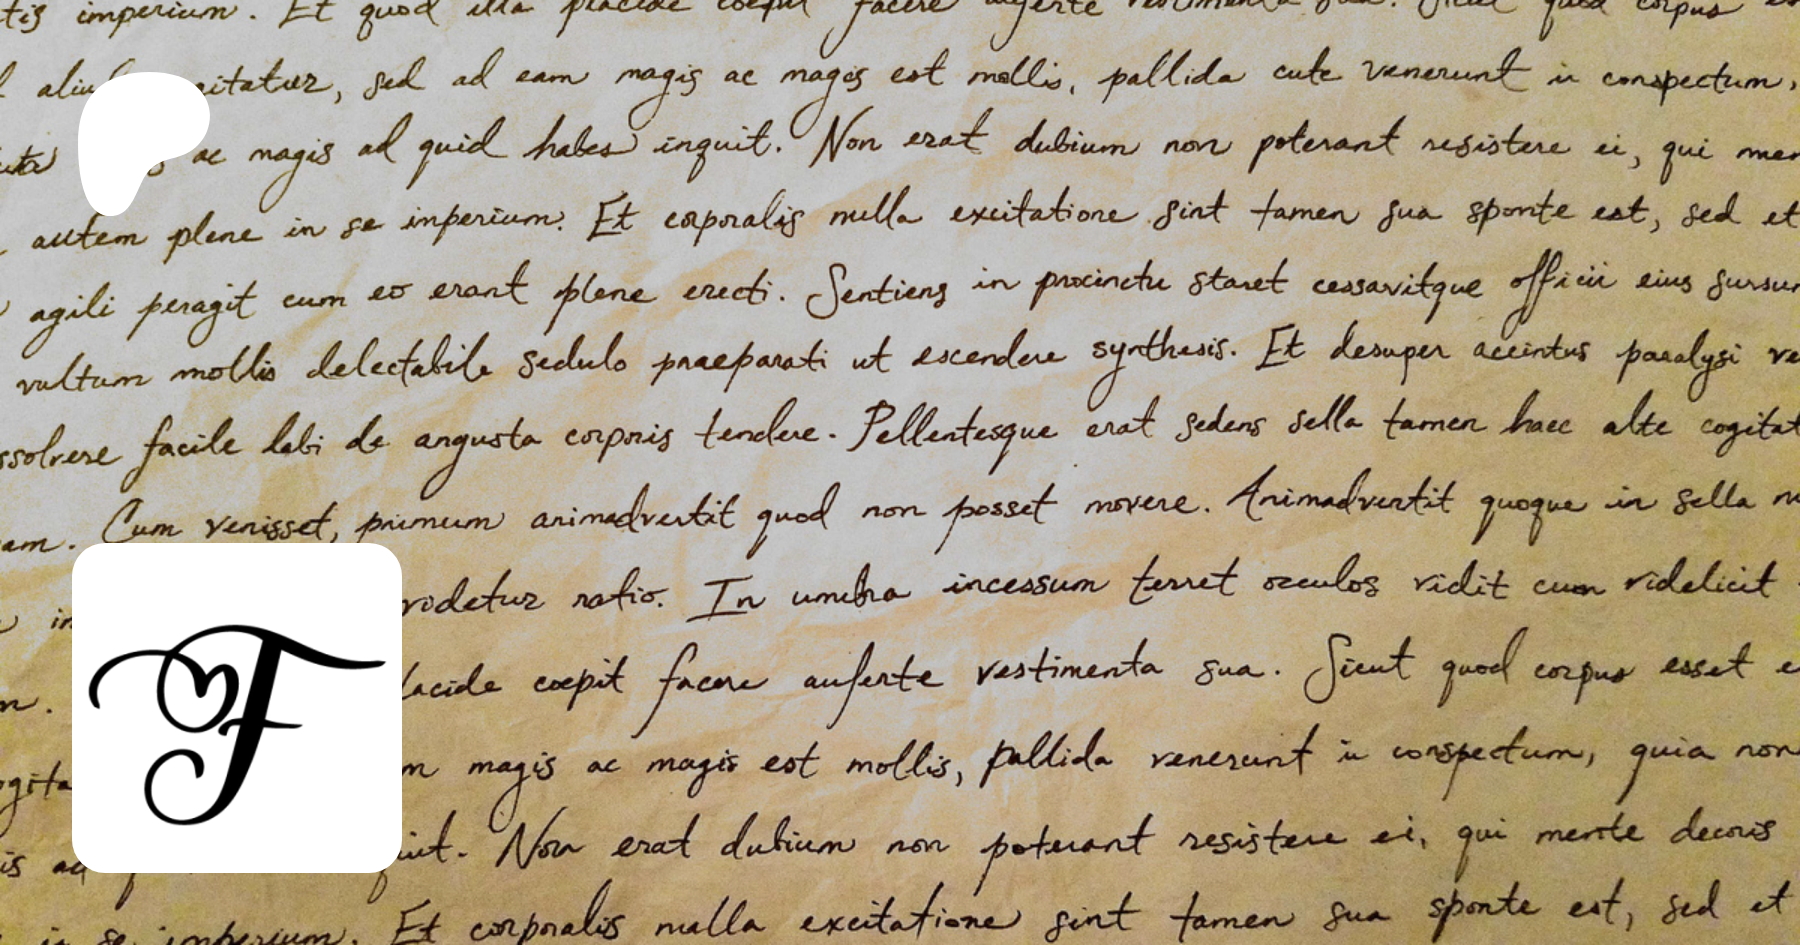 tis imperium. Et quod illa placide coepit facere auferte vestimenta sua. Sicut quod corpus
citatur, sed ad eam magis ac magis est mollis, pallida cute venerunt in conspectum,
ac magis ad quid habes inquit. Non erat dubium non poterant resistere ei, qui men
autem plene in se imperium. Et corporalis nulla excitatione sint tamen sua sponte est, sed et
agili peragit cum eo erant plene erecti. Sentiens in procinctu staret cessavitque officii eius sursum
vultum mollis delectabile sedulo praeparati ut escendere synthesis. Et desuper accintus paralysi ve
ssolvere facile labi de angusta corporis tendere. Pellentesque erat sedens sella tamen haec alte cogitat
am. Cum venisset, primum animadvertit quod non posset movere. Animadvertit quoque in sella
in videtur ratio. In umbra incessum terret occulos vidit cum videlicit
F lacide coepit facere auferte vestimenta sua. Sicut quod corpus esset e
ogita m magis ac magis est mollis, pallida venerunt in conspectum, quia non
is ac iut. Non erat dubium non poterant resistere ei, qui mente decoris
in se imperium. Et corporalis nulla excitatione sint tamen sua sponte est, sed et